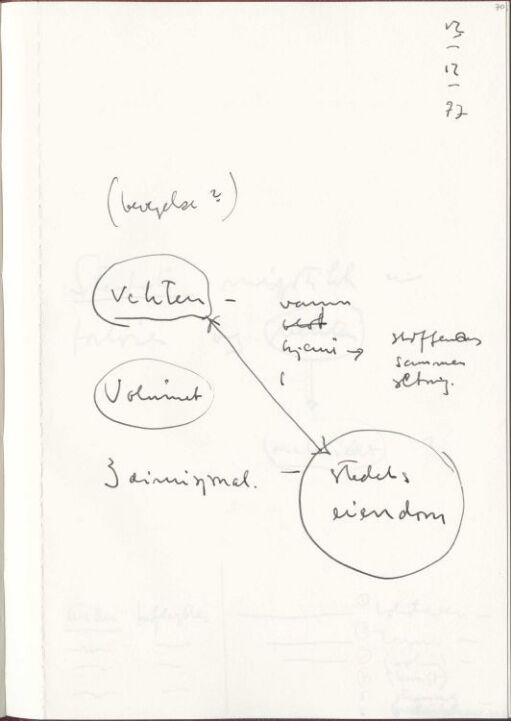 70
13
–
12
–
77
(bevegelse ?)
Vekten –
varm
kjemi → stoffenes
sammen
setning.
Volumet
3 dimensjonal. – stedets
eiendom